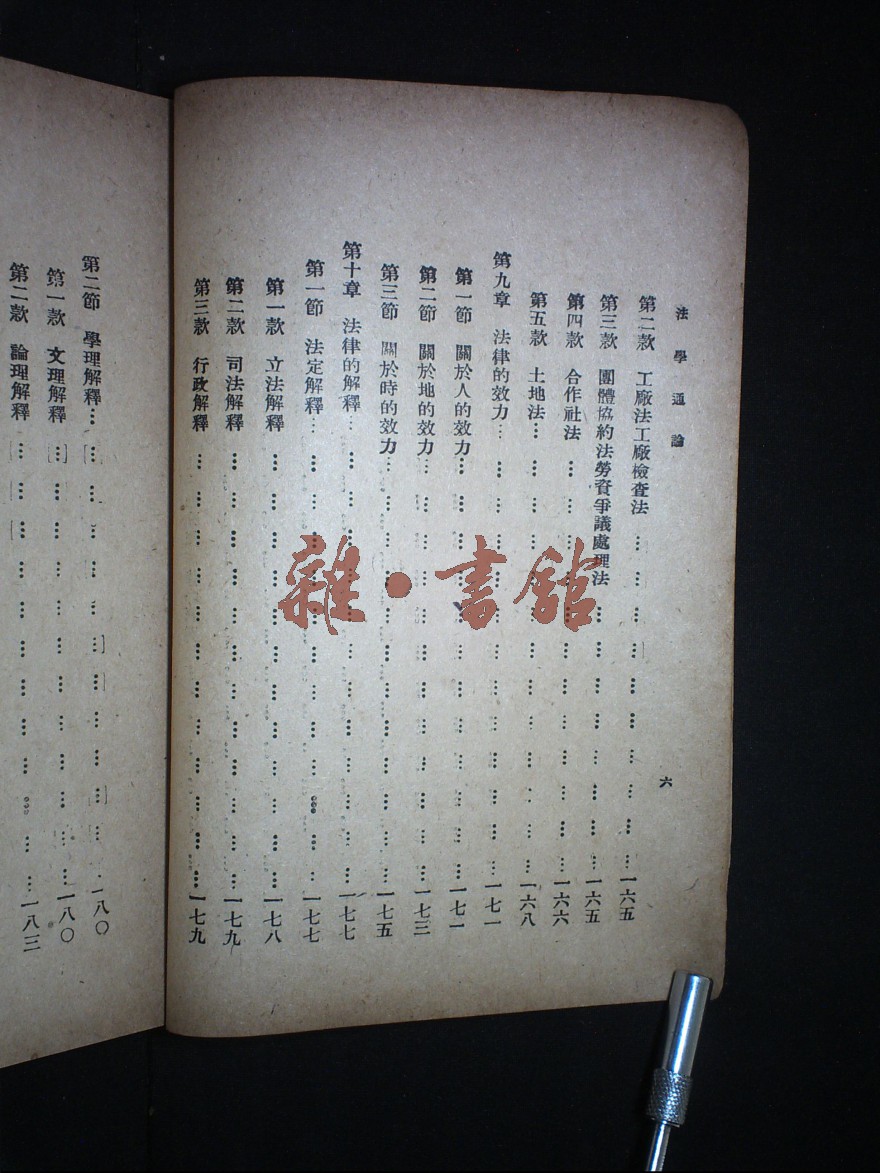 法學通論
六
第二款 工廠法工廠檢查法………一六五
第三款 團體協約法勞資爭議處理法………一六五
第四款 合作社法………一六六
第五款 土地法………一六八
第九章 法律的效力………一七一
第一節 關於人的效力………一七一
第二節 關於地的效力………一七三
第三節 關於時的效力………一七五
第十章 法律的解釋………一七七
第一節 法定解釋………一七七
第一款 立法解釋………一七八
第二款 司法解釋………一七九
第三款 行政解釋………一七九
第二節 學理解釋………一八〇
第一款 文理解釋………一八〇
第二款 論理解釋………一八三
雜·書館